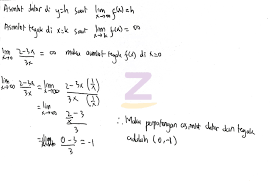 Asimtot datar di y=h saat lim x→∞ f(x) = h
Asimtot tegak di x=k saat lim x→k f(x) = ∞
lim x→0 2-3x/3x = ∞ maka asimtot tegak f(x) di x=0
lim x→∞ 2-3x/3x = lim x→∞ 2-3x (1/x) / 3x (1/x)
= lim x→∞ 2/x - 3 / 3
= 0-3/3 = -1
∴ Maka perpotongan asimtot datar dan tegak
adalah (0,-1)
Z